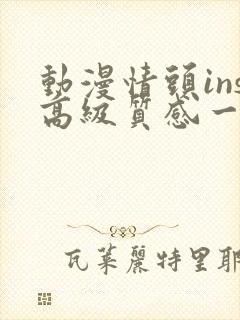 動漫情頭ins
高級質感一
瓦萊麗特里耶